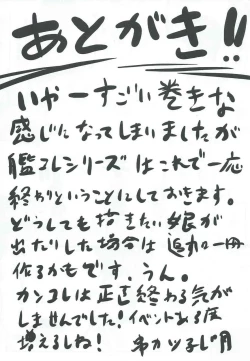 あとがき!!
いやーすごい巻きな
感じになってしまいましたが
艦コレシリーズはこれで一応
終わりということにしておきます。
どうしても描きたい娘が
出たりした場合は追加一冊
作るかもです。うん。
カンコレは正直終わる気が
しませんでした!イベントある度
増えるしね!